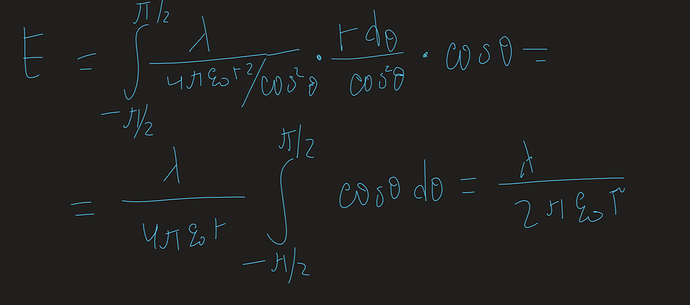 E = ∫_{-π/2}^{π/2} λ/(4πε₀r²/cos²θ) · r dθ/cos²θ · cosθ =
= λ/(4πε₀r) ∫_{-π/2}^{π/2} cosθ dθ = λ/(2πε₀r)